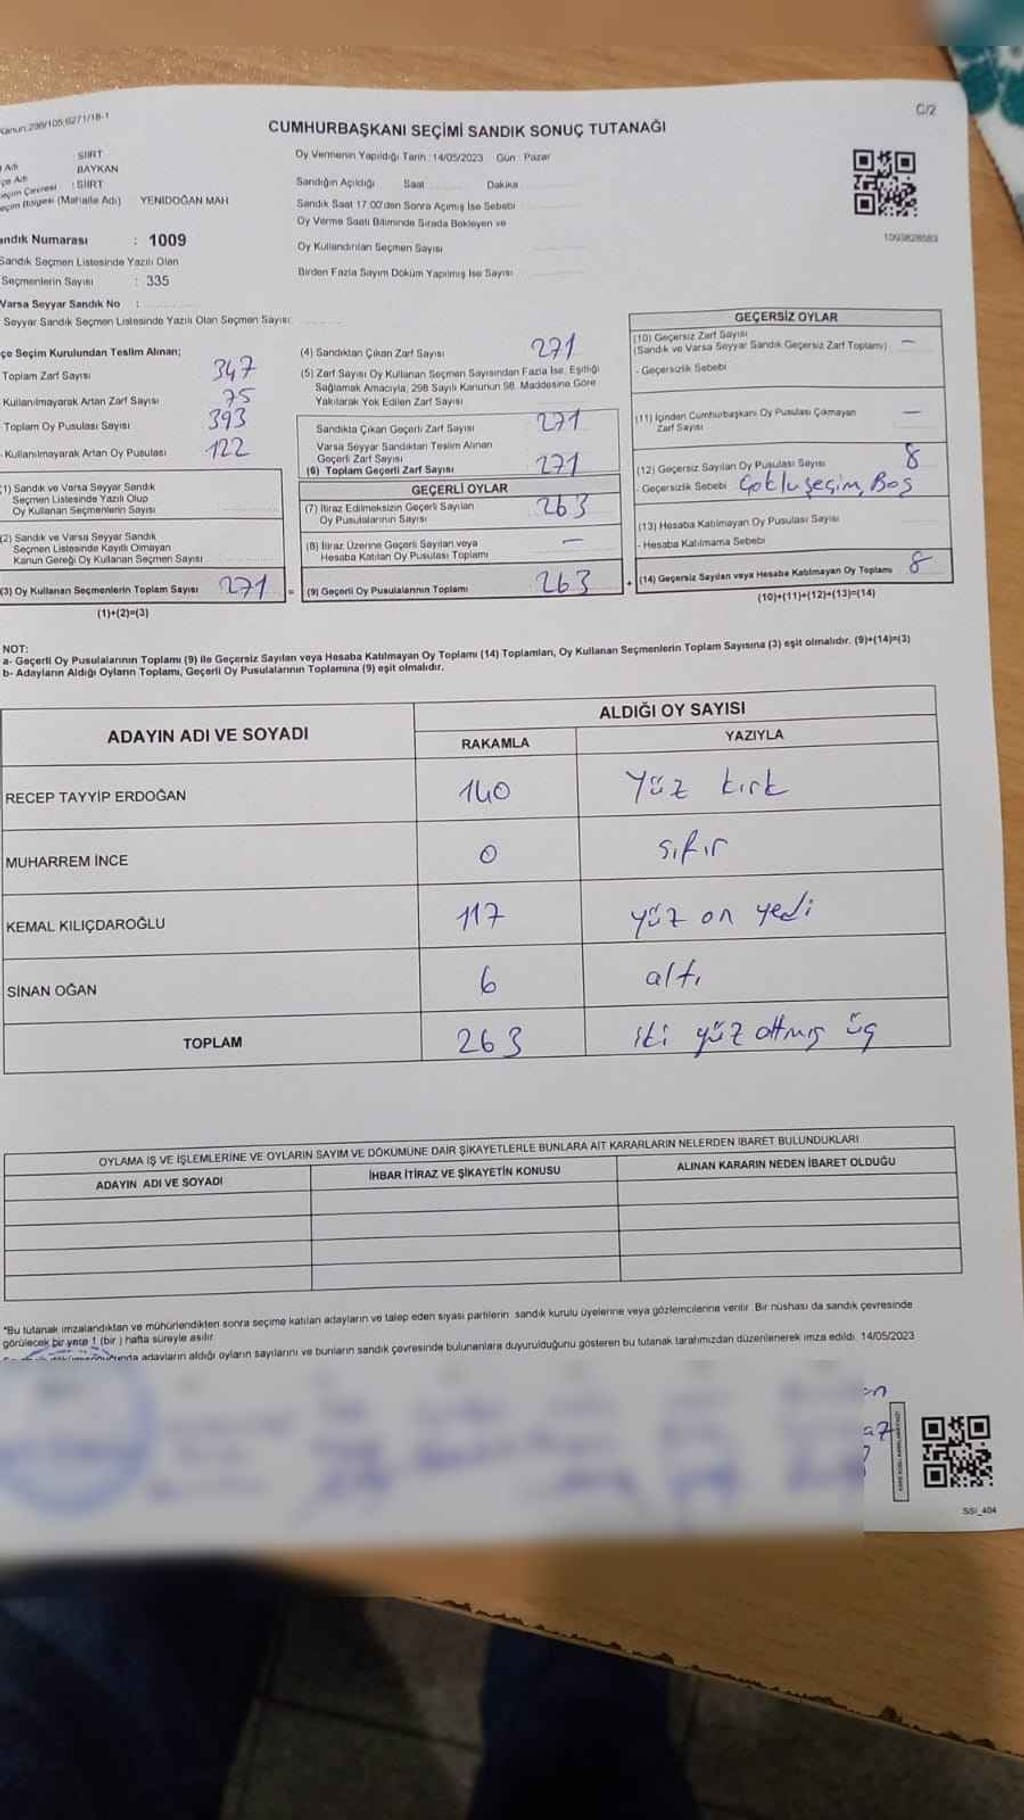 Kanun:298/105,6271/18-1
C/2
CUMHURBAŞKANI SEÇİMİ SANDIK SONUÇ TUTANAĞI
Adı : SİİRT
çe Adı : BAYKAN
eçim Çevresi : SİİRT
eçim Bölgesi (Mahalle Adı) YENİDOĞAN MAH
andık Numarası : 1009
Sandık Seçmen Listesinde Yazılı Olan
Seçmenlerin Sayısı : 335
Varsa Seyyar Sandık No :
Seyyar Sandık Seçmen Listesinde Yazılı Olan Seçmen Sayısı:
Oy Vermenin Yapıldığı Tarih :14/05/2023 Gün : Pazar
Sandığın Açıldığı Saat Dakika
Sandık Saat 17.00'den Sonra Açılmış İse Sebebi
Oy Verme Saati Bitiminde Sırada Bekleyen ve
Oy Kullandırılan Seçmen Sayısı
Birden Fazla Sayım Döküm Yapılmış İse Sayısı
çe Seçim Kurulundan Teslim Alınan;
Toplam Zarf Sayısı 347
Kullanılmayarak Artan Zarf Sayısı 75
Toplam Oy Pusulası Sayısı 393
Kullanılmayarak Artan Oy Pusulası 122
(1) Sandık ve Varsa Seyyar Sandık
Seçmen Listesinde Yazılı Olup
Oy Kullanan Seçmenlerin Sayısı
(2) Sandık ve Varsa Seyyar Sandık
Seçmen Listesinde Kayıtlı Olmayan
Kanun Gereği Oy Kullanan Seçmen Sayısı
(3) Oy Kullanan Seçmenlerin Toplam Sayısı 271 =
(1)+(2)=(3)
(4) Sandıktan Çıkan Zarf Sayısı 271
(5) Zarf Sayısı Oy Kullanan Seçmen Sayısından Fazla İse, Eşitliği
Sağlamak Amacıyla, 298 Sayılı Kanunun 98. Maddesine Göre
Yakılarak Yok Edilen Zarf Sayısı
Sandıkta Çıkan Geçerli Zarf Sayısı 271
Varsa Seyyar Sandıktan Teslim Alınan
Geçerli Zarf Sayısı
(6) Toplam Geçerli Zarf Sayısı 271
GEÇERLİ OYLAR
(7) İtiraz Edilmeksizin Geçerli Sayılan
Oy Pusulalarının Sayısı 263
(8) İtiraz Üzerine Geçerli Sayılan veya
Hesaba Katılan Oy Pusulası Toplamı —
(9) Geçerli Oy Pusulalarının Toplamı 263 +
GEÇERSİZ OYLAR
(10) Geçersiz Zarf Sayısı
(Sandık ve Varsa Seyyar Sandık Geçersiz Zarf Toplamı) —
- Geçersizlik Sebebi
(11) İçinden Cumhurbaşkanı Oy Pusulası Çıkmayan
Zarf Sayısı —
(12) Geçersiz Sayılan Oy Pusulası Sayısı 8
- Geçersizlik Sebebi Çoklu seçim, Boş
(13) Hesaba Katılmayan Oy Pusulası Sayısı
- Hesaba Katılmama Sebebi
(14) Geçersiz Sayılan veya Hesaba Katılmayan Oy Toplamı 8
(10)+(11)+(12)+(13)=(14)
NOT:
a- Geçerli Oy Pusulalarının Toplamı (9) ile Geçersiz Sayılan veya Hesaba Katılmayan Oy Toplamı (14) Toplamları, Oy Kullanan Seçmenlerin Toplam Sayısına (3) eşit olmalıdır. (9)+(14)=(3)
b- Adayların Aldığı Oyların Toplamı, Geçerli Oy Pusulalarının Toplamına (9) eşit olmalıdır.
ADAYIN ADI VE SOYADI
ALDIĞI OY SAYISI
RAKAMLA YAZIYLA
RECEP TAYYİP ERDOĞAN 140 Yüz kırk
MUHARREM İNCE 0 sıfır
KEMAL KILIÇDAROĞLU 117 yüz on yedi
SİNAN OĞAN 6 altı
TOPLAM 263 iki yüz altmış üç
OYLAMA İŞ VE İŞLEMLERİNE VE OYLARIN SAYIM VE DÖKÜMÜNE DAİR ŞİKAYETLERLE BUNLARA AİT KARARLARIN NELERDEN İBARET BULUNDUKLARI
ADAYIN ADI VE SOYADI İHBAR İTİRAZ VE ŞİKAYETİN KONUSU ALINAN KARARIN NEDEN İBARET OLDUĞU
*Bu tutanak imzalandıktan ve mühürlendikten sonra seçime katılan adayların ve talep eden siyasi partilerin sandık kurulu üyelerine veya gözlemcilerine verilir. Bir nüshası da sandık çevresinde
görülecek bir yere 1 (bir ) hafta süreyle asılır.
adayların aldığı oyların sayılarını ve bunların sandık çevresinde bulunanlara duyurulduğunu gösteren bu tutanak tarafımızdan düzenlenerek imza edildi. 14/05/2023
SSİ_404